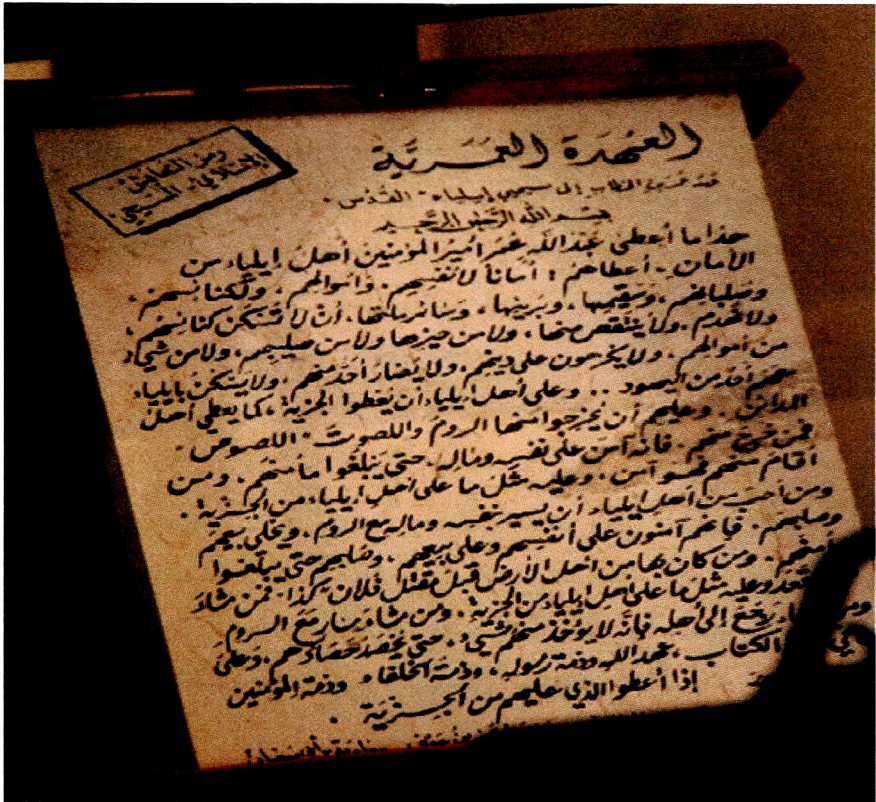 العهدة العمرية
رمز التعايش
الإسلامي المسيحي
إلى مسيحيي إيلياء القدس
بسم الله الرحمن الرحيم
هذا ما أعطى عبدالله عمر أمير المؤمنين أهل إيلياء من
الأمان. أعطاهم: أماناً لأنفسهم. وأموالهم، ولكنائسهم،
وصلبانهم، وسقيمها، وبريئها، وسائر ملتها. أن لا تسكن كنائسهم،
ولا تهدم. ولا ينتقص منها، ولا من حيزها ولا من صليبهم، ولا من شيء
من أموالهم. ولا يكرهون على دينهم، ولا يضار أحد منهم، ولا يسكن بايلياء
معهم أحد من اليهود .. وعلى أهل إيلياء أن يعطوا الجزية، كما يعطي أهل
المدائن. وعليهم أن يخرجوا منها الروم واللصوت - اللصوص -
فمن خرج منهم. فانه آمن على نفسه وماله. حتى يبلغوا مأمنهم. ومن
أقام منهم فهو آمن. وعليه مثل ما على أهل إيلياء، من الجزية.
ومن أحب من أهل إيلياء أن يسير بنفسه وماله مع الروم. ويخلي بيعهم
وصلبهم. فإنهم آمنون على أنفسهم وعلى بيعهم. وصلبهم حتى يبلغوا
مأمنهم. ومن كان بها من أهل الأرض قبل مقتل فلان - كذا - فمن شاء
قعد وعليه مثل ما على أهل ايلياء من الجزية. ومن شاء سار مع الروم
رجع إلى أهله فإنه لا يؤخذ منهم شيء. حتى يحصد حصادهم، وعلى
الكتاب، عهد الله وذمة رسوله، وذمة الخلفاء وذمة المؤمنين
إذا أعطوا الذي عليهم من الجزية.